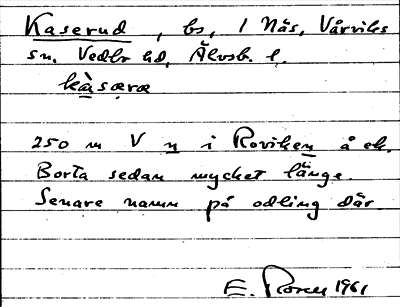 Kaserud, bs, 1 Nås, Vårviks
sn. Vedbo hd, Älvsb. l.
kàsæræ
250 m V n i Roviken å ek.
Borta sedan mycket länge.
Senare namn på odling där.
E. Rosell 1961